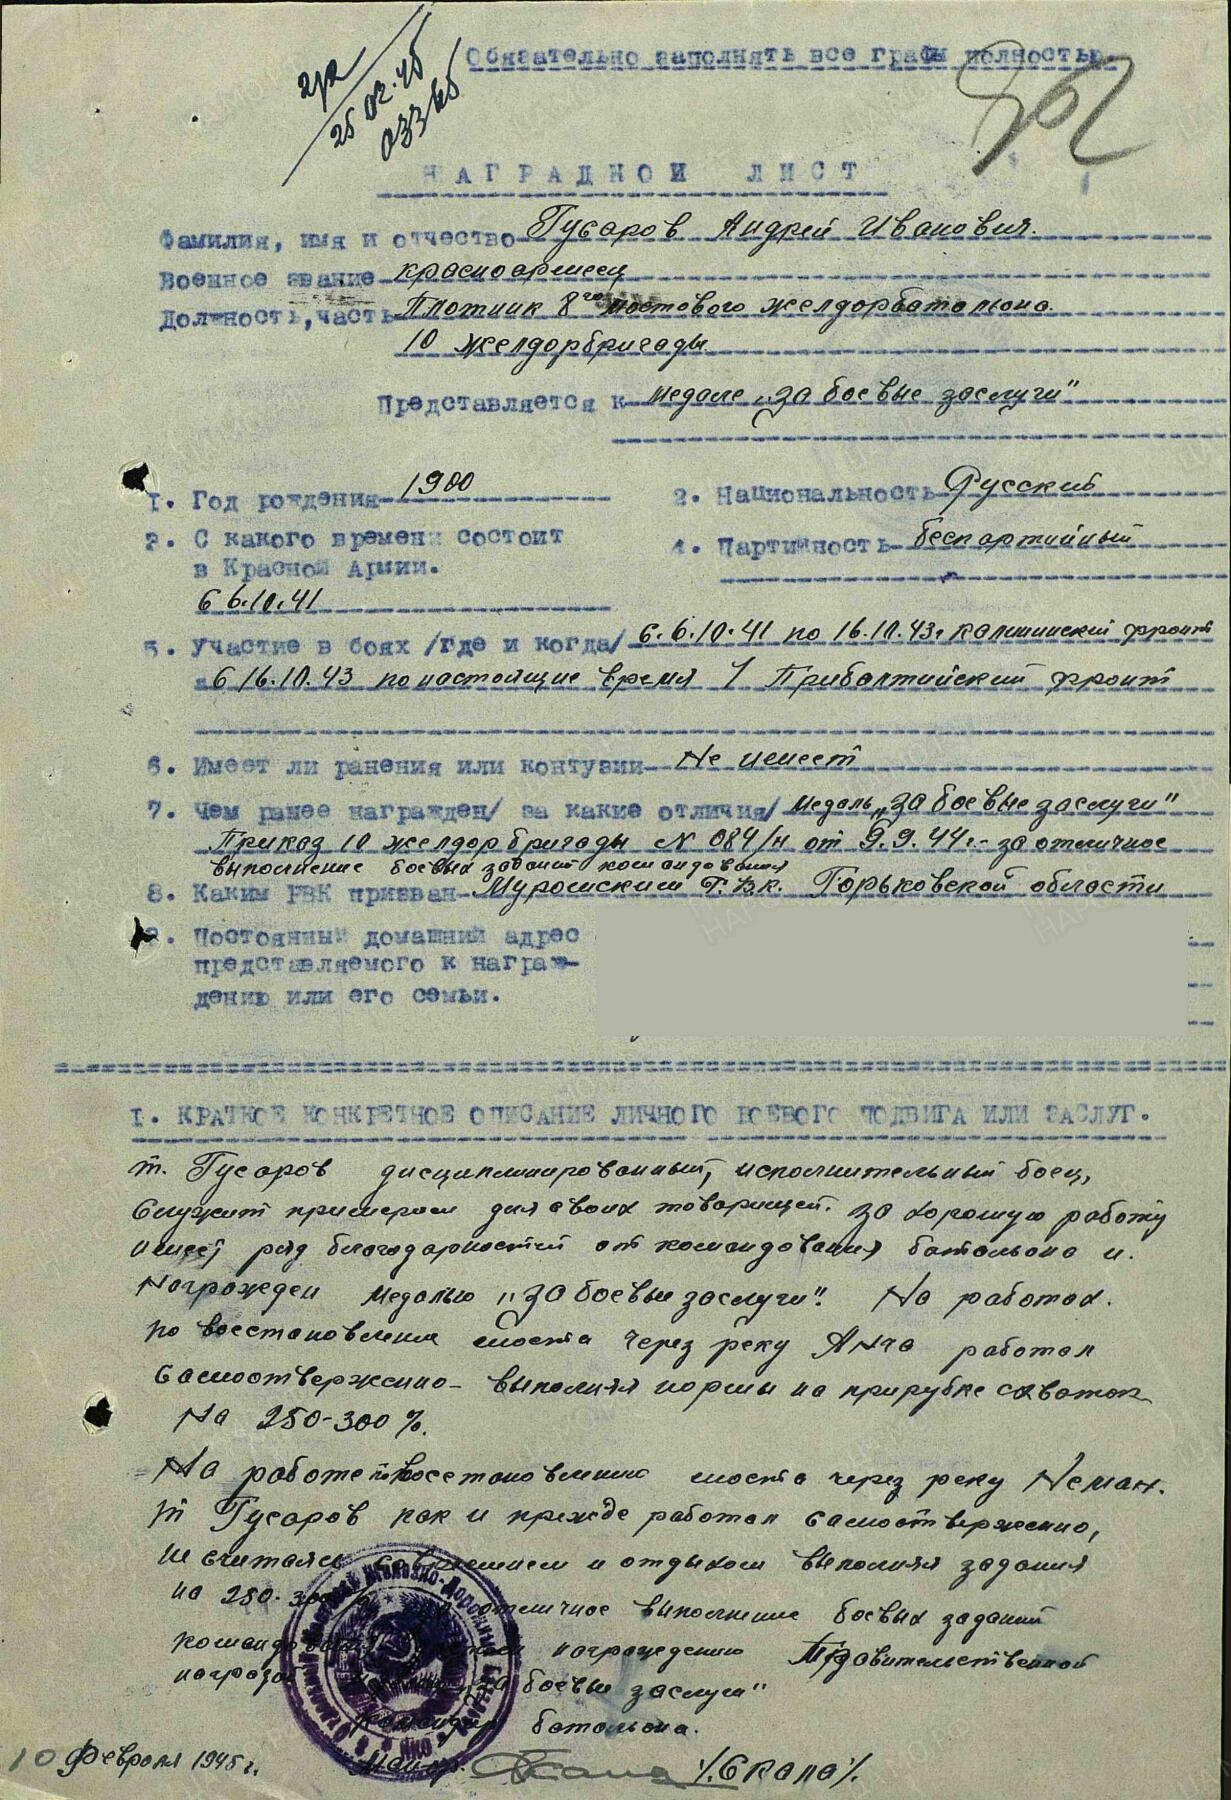 Обязательно заполнять все графы полностью
25.02.45
03365
НАГРАДНОЙ ЛИСТ
Фамилия, имя и отчество Гусаров Андрей Иванович.
Военное звание красноармеец
Должность, часть Плотник 8го мостового желдорбатальона.
10 желдорбригады
Представляется к медале „За боевые заслуги"
1. Год рождения 1900
2. Национальность Русский
3. С какого времени состоит
в Красной Армии.
с 6.10.41
4. Партийность беспартийный
5. Участие в боях /где и когда/ с. 6.10.41 по 16.10.43г Калининский фронт
с 16.10.43 по настоящие время 1 Прибалтийский фронт
6. Имеет ли ранения или контузии Не имеет
7. Чем ранее награжден/ за какие отличия/ медаль „За боевые заслуги"
Приказ 10 желдорбригады N 084/н от 9.9.44г.- за отличное
выполнение боевых заданий командования
8. Каким РВК призван Муромским Г.В.К. Горьковской области
9. Постоянный домашний адрес
представляемого к награж-
дению или его семьи.
I. КРАТКОЕ КОНКРЕТНОЕ ОПИСАНИЕ ЛИЧНОГО БОЕВОГО ПОДВИГА ИЛИ ЗАСЛУГ.
т. Гусаров дисциплинированный, исполнительный боец,
служит примером для своих товарищей. За хорошую работу
имеет ряд благодарностей от командования батальона и.
Награжден медалью „За боевые заслуги". На работах.
по восстановлению моста через реку Анча работал
самоотверженно- выполняя нормы на прирубке схваток
На 250-300%.
На работе по восстановлению моста через реку Неман.
т Гусаров как и прежде работал самоотверженно,
не считаясь со временем и отдыхом выполнял задания
на 250-300% отличное выполнение боевых заданий
командования награждению Правительственной
наградой „За боевые заслуги"
Командир батальона.
Майор. /Скала/.
10 Февраля 1945г.